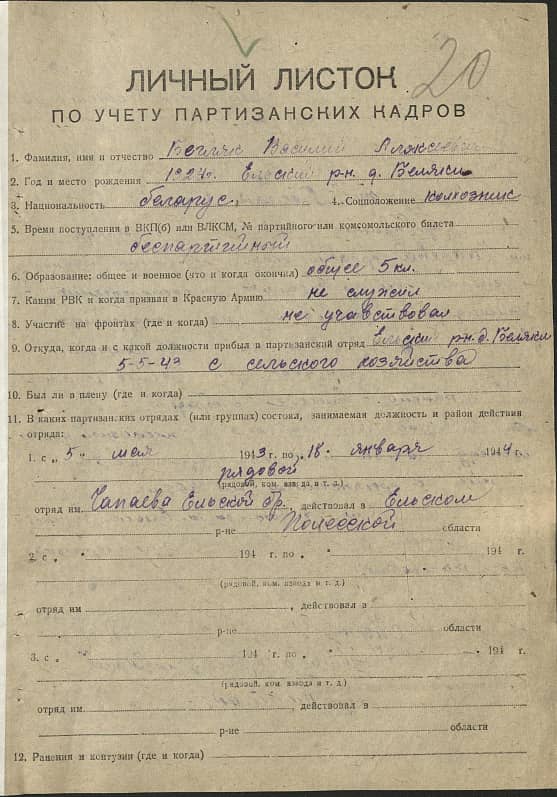 20
ЛИЧНЫЙ ЛИСТОК
ПО УЧЕТУ ПАРТИЗАНСКИХ КАДРОВ
1. Фамилия, имя и отчество Василий
2. Год и место рождения 1927г. Ельский рн. д. Беляки
3. Национальность беларус. 4. Соцположение колхозник
5. Время поступления в ВКП(б) или ВЛКСМ, № партийного или комсомольского билета
беспартийный
6. Образование: общее и военное (что и когда окончил) общее 5 кл.
7. Каким РВК и когда призван в Красную Армию не служил
8. Участие на фронтах (где и когда) не учавствовал
9. Откуда, когда и с какой должности прибыл в партизанский отряд Ельский рн. д. Беляки
5-5-43 с сельского хозяйства
10. Был ли в плену (где и когда)
11. В каких партизанских отрядах (или группах) состоял, занимаемая должность и район действия
отряда:
1. с „ 5 " мая 1943 г. по „ 18 " января 1944 г.
рядовой
(рядовой, ком. взвода и т. д.)
отряд им. Чапаева Ельской бр., действовал в Ельском
р-не Полесской области
2. с „ " 194 г. по „ " 194 г.
(рядовой, ком. взвода и т. д.)
отряд им , действовал в
р-не области
3. с „ " 194 г. по „ " 194 г.
(рядовой, ком. взвода и т. д.)
отряд им. , действовал в
р-не области
12. Ранения и контузии (где и когда)